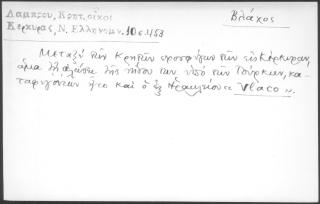 Λαμπρου, Κρητ. οίκοι
Κερκυρας, Ν. Ελληνομν. 10 σ. 453
Βλάχος
Μεταξύ των Κρητών προσφύγων των εις Κέρκυραν,
άμα τη αλώσει της νήσου των υπό των Τούρκων, κα-
ταφυγόντων ήτο και ο εξ Ηρακλείου « Vlaco ».